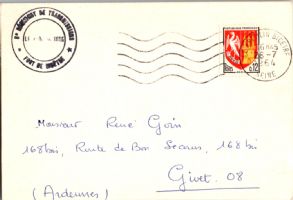 8e RÉGIMENT DE TRANSMISSIONS
FORT DE BICÊTRE
LIN BICÊTRE
-7
SEINE
0,12
Monsieur René Goin
168 bis, Route de Bon Secours, 168 bis
Givet. 08
(Ardennes)